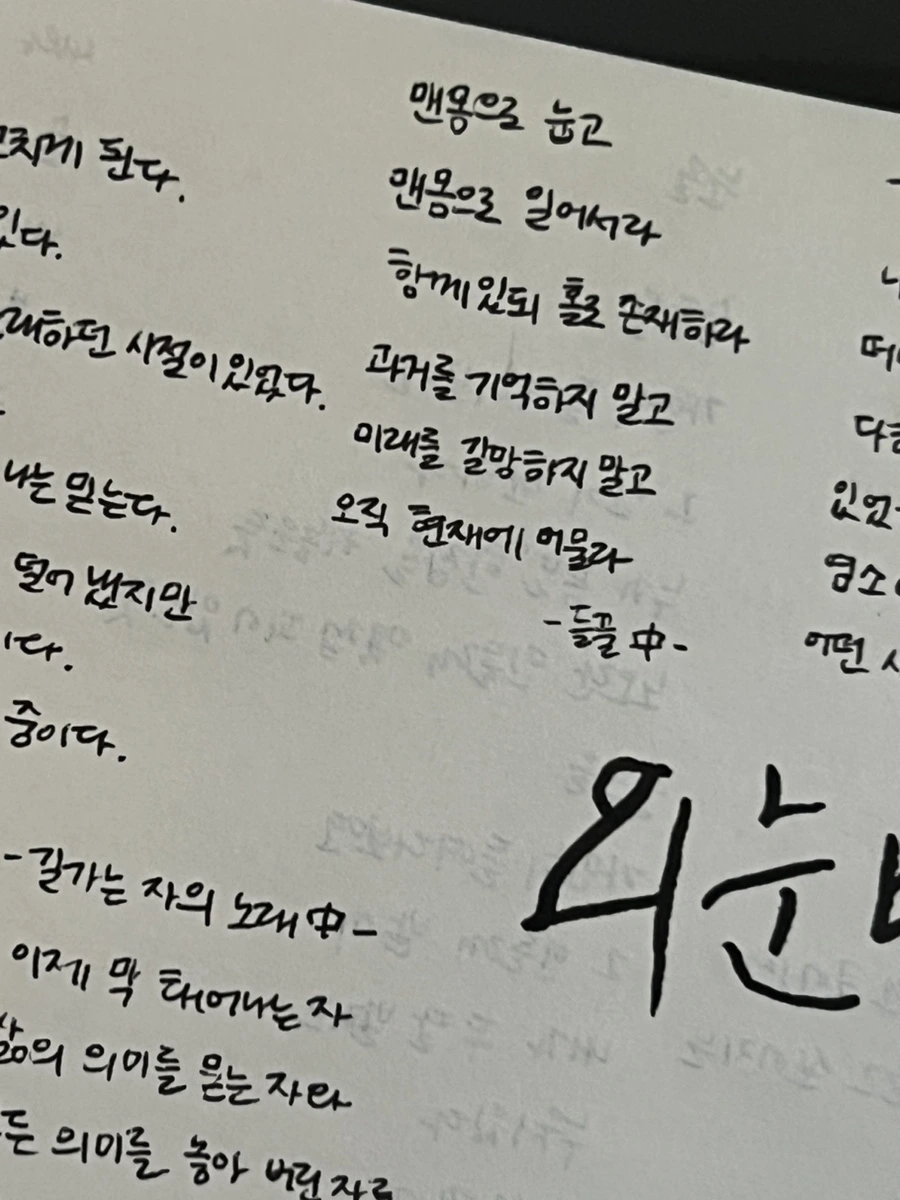 된다.
있다.
시절이 있었다.
나는 믿는다.
떨어 냈지만
이다.
중이다.
- 길가는 자의 노래 中 -
이제 막 태어나는 자
삶의 의미를 묻는 자와
의미를 놓아 버린 자를
맨몸으로 눕고
맨몸으로 일어서라
함께 있되 홀로 존재하라
과거를 기억하지 말고
미래를 갈망하지 말고
오직 현재에 머물라
- 들풀 中 -
외눈
있었
염소
어떤